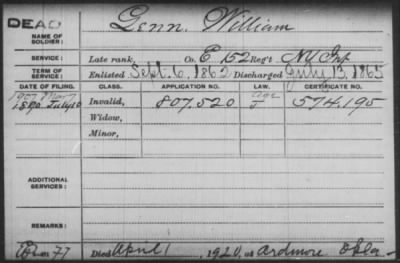 DEAD
NAME OF SOLDIER: Genn, William
SERVICE: Late rank, Co. E 152 Reg't NY Inf
TERM OF SERVICE: Enlisted Sept. 6, 1862 Discharged July 13, 1865
DATE OF FILING. CLASS. APPLICATION NO. LAW. CERTIFICATE NO.
1890 July 10 Invalid, 807.520 J 574.195
Widow,
Minor,
ADDITIONAL SERVICES:
REMARKS:
77 Died April 1, 1920, at Ardmore Okla